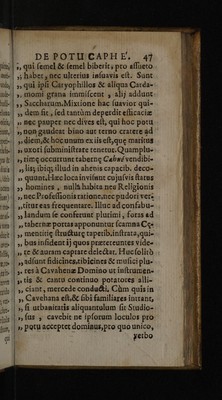 DE POTU CAPHE'. 47
„ qui semel & semel biberit, pro assueto
„ habet, nec ulterius insuavis est. Sunt
„ qui ipsi Caryophillos & aliqua Carda-
„ momi grana immiscent, alij addunt
„ Saccharum. Mixtione hac suavior qui-
„ dem fit, sed tantum deperdit efficaciæ
„ nec pauper nec dives est, qui hoc potu
„ non gaudeat bino aut terno cratere ad
„ diem, & hoc unum ex iis est, quæ maritus
„ uxori subministrare tenetur. Quamplu-
„ rimę occurrunt tabernę Cahvé vendibi-
„ lis, ibiq; illud in ahenis capacib. deco-
„ quunt. Hæc loca invisunt cujusvis status
„ homines, nulla habita nec Religionis
„ nec Professionis ratione, nec pudori ver-
„ titur eas frequentare. Illuc ad confabu-
„ landum se conferunt plurimi, foras ad
„ tabernæ portas apponuntur scamna Cę-
„ mentitię structurę tapetib. instrata, qui-
„ bus insident ij quos prætereuntes vide-
„ te & auram captare delectat. Huc solito
„ adsunt fidicines, tibicines & musici plu-
„ res à Cavhenæ Domino ut instrumen-
„ tis & cantu continuo potatores alli-
„ ciant, mercede conducti. Cùm quis in
„ Cavehana est, & sibi familiares intrant,
„ si urbanitatis aliquantulum sit Studio-
„ sus, cavebit ne ipsorum loculos pro
„ potu accepter dominus, pro quo unico,
verbo